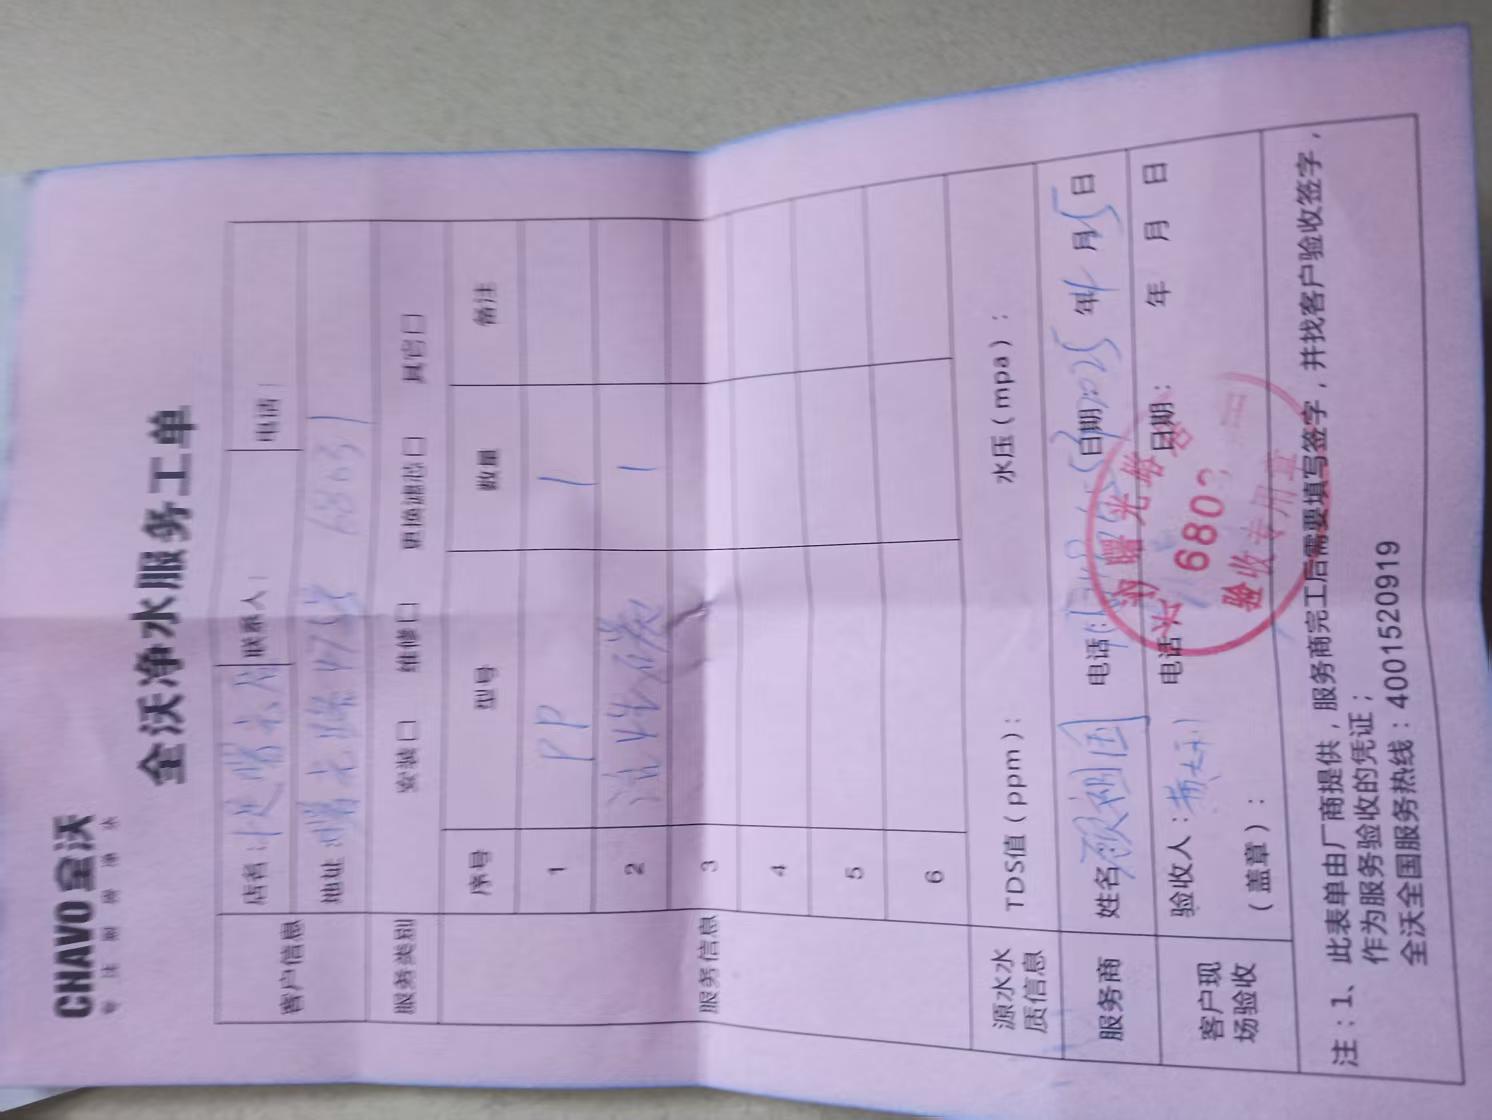 CHAVO 全沃
专注厨房净水
全沃净水服务工单
客户信息
店名：
联系人：
电话：
地址：曙光路475号 68031
服务类别
安装口 维修口 更换滤芯口 其它口
服务信息
序号 型号 数量 备注
1 PP 1
2 活性碳 1
3
4
5
6
源水水质信息 TDS值（ppm）： 水压（mpa）：
服务商 姓名 电话： 日期 2025 年 月 5 日
客户现场验收 验收人： 电话 日期： 年 月 日
（盖章）：
曙光路
680
验收专用章
注：1、此表单由厂商提供，服务商完工后需要填写签字，并找客户验收签字，
作为服务验收的凭证；
全沃全国服务热线：4001520919